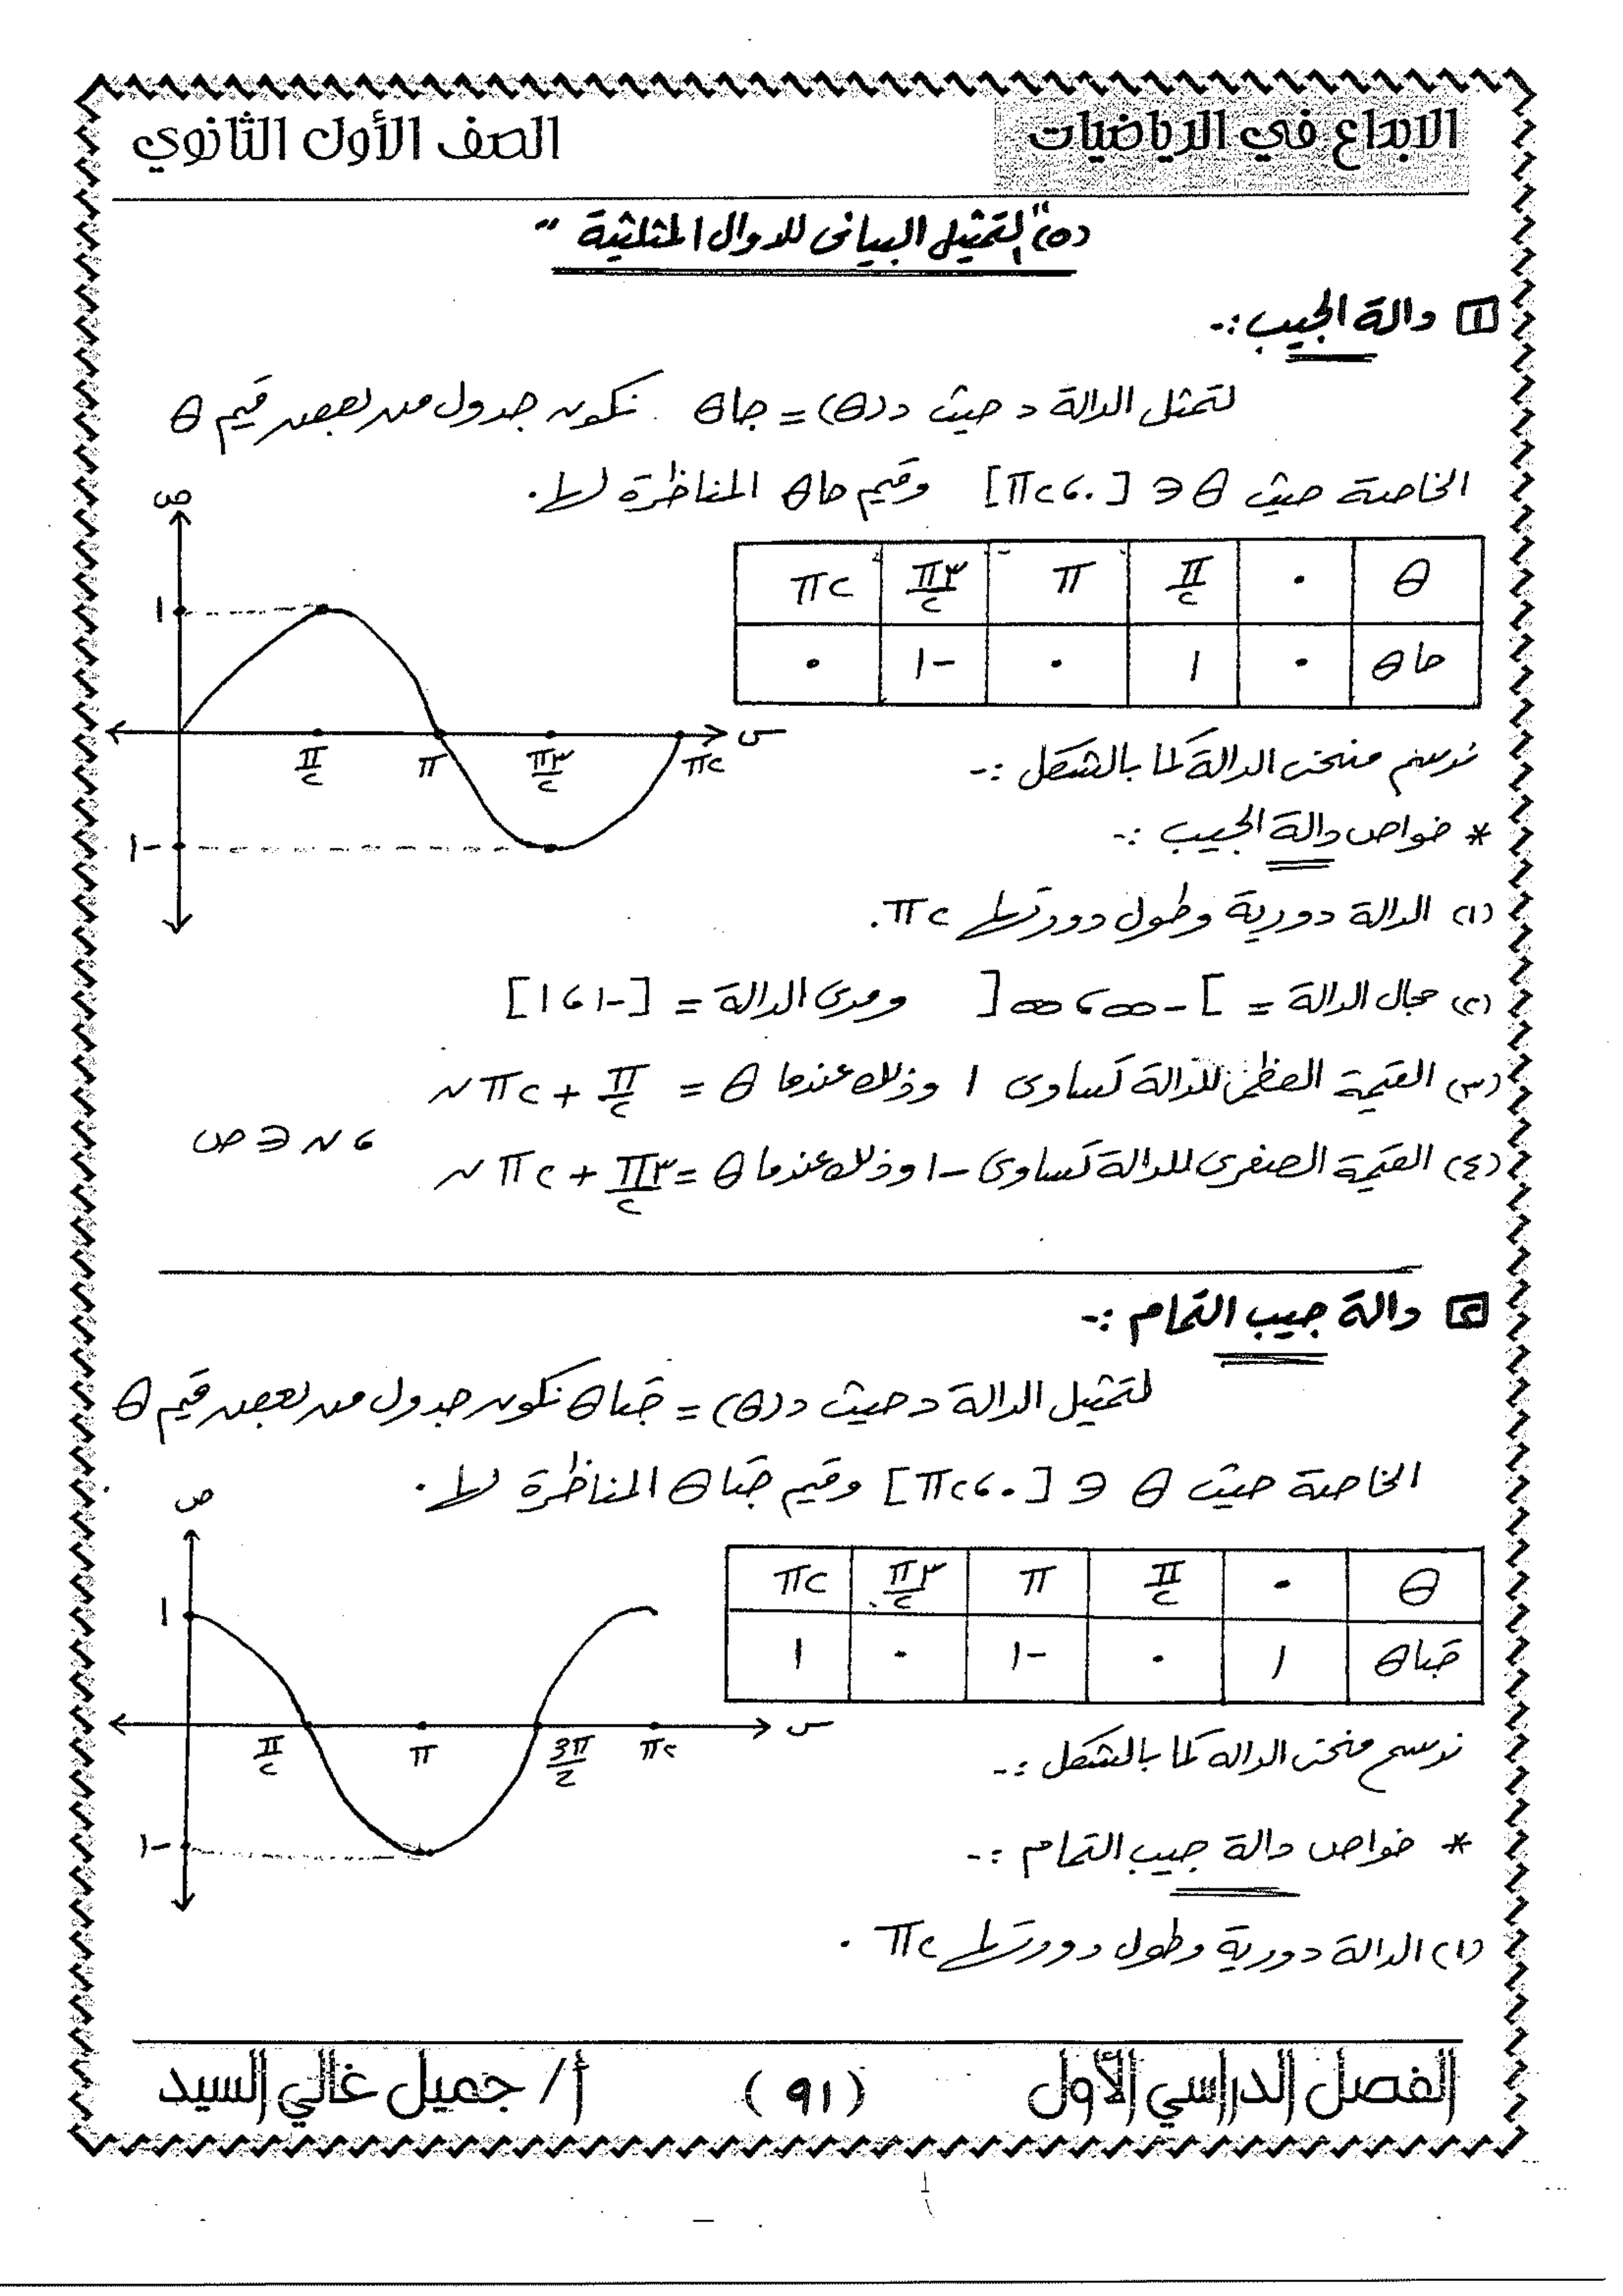 الابداع في الرياضيات
الصف الأول الثانوي
(٥) "التمثيل البيانى للدوال المثلثية"
١ دالة الجيب :-
لتمثل الدالة د حيث د(θ) = جاθ نكون جدول من بعض قيم θ
الخاصة حيث θ ∈ [٠ ، ٢π] وقيم جاθ المناظرة لها .
θ | ٠ | π/٢ | π | ٣π/٢ | ٢π
جاθ | ٠ | ١ | ٠ | -١ | ٠
ص
١
-١
π/٢ π ٣π/٢ ٢π س
نرسم منحنى الدالة كما بالشكل :-
* خواص دالة الجيب :-
(١) الدالة دورية وطول دورتها ٢π.
(٢) مجال الدالة = ]-∞ ، ∞[ ومدى الدالة = [-١ ، ١]
(٣) القيمة العظمى للدالة تساوى ١ وذلك عندما θ = π/٢ + ٢π ن
، ن ∈ ص
(٤) القيمة الصغرى للدالة تساوى -١ وذلك عندما θ = ٣π/٢ + ٢π ن
٢ دالة جيب التمام :-
لتمثيل الدالة د حيث د(θ) = جتاθ نكون جدول من بعض قيم θ
الخاصة حيث θ ∈ [٠ ، ٢π] وقيم جتاθ المناظرة لها .
θ | ٠ | π/٢ | π | ٣π/٢ | ٢π
جتاθ | ١ | ٠ | -١ | ٠ | ١
ص
١
-١
π/٢ π 3π/2 ٢π س
نرسم منحنى الدالة كما بالشكل :-
* خواص دالة جيب التمام :-
(١) الدالة دورية وطول دورتها ٢π .
الفصل الدراسي الأول
(٩١)
أ/ جميل غالي السيد